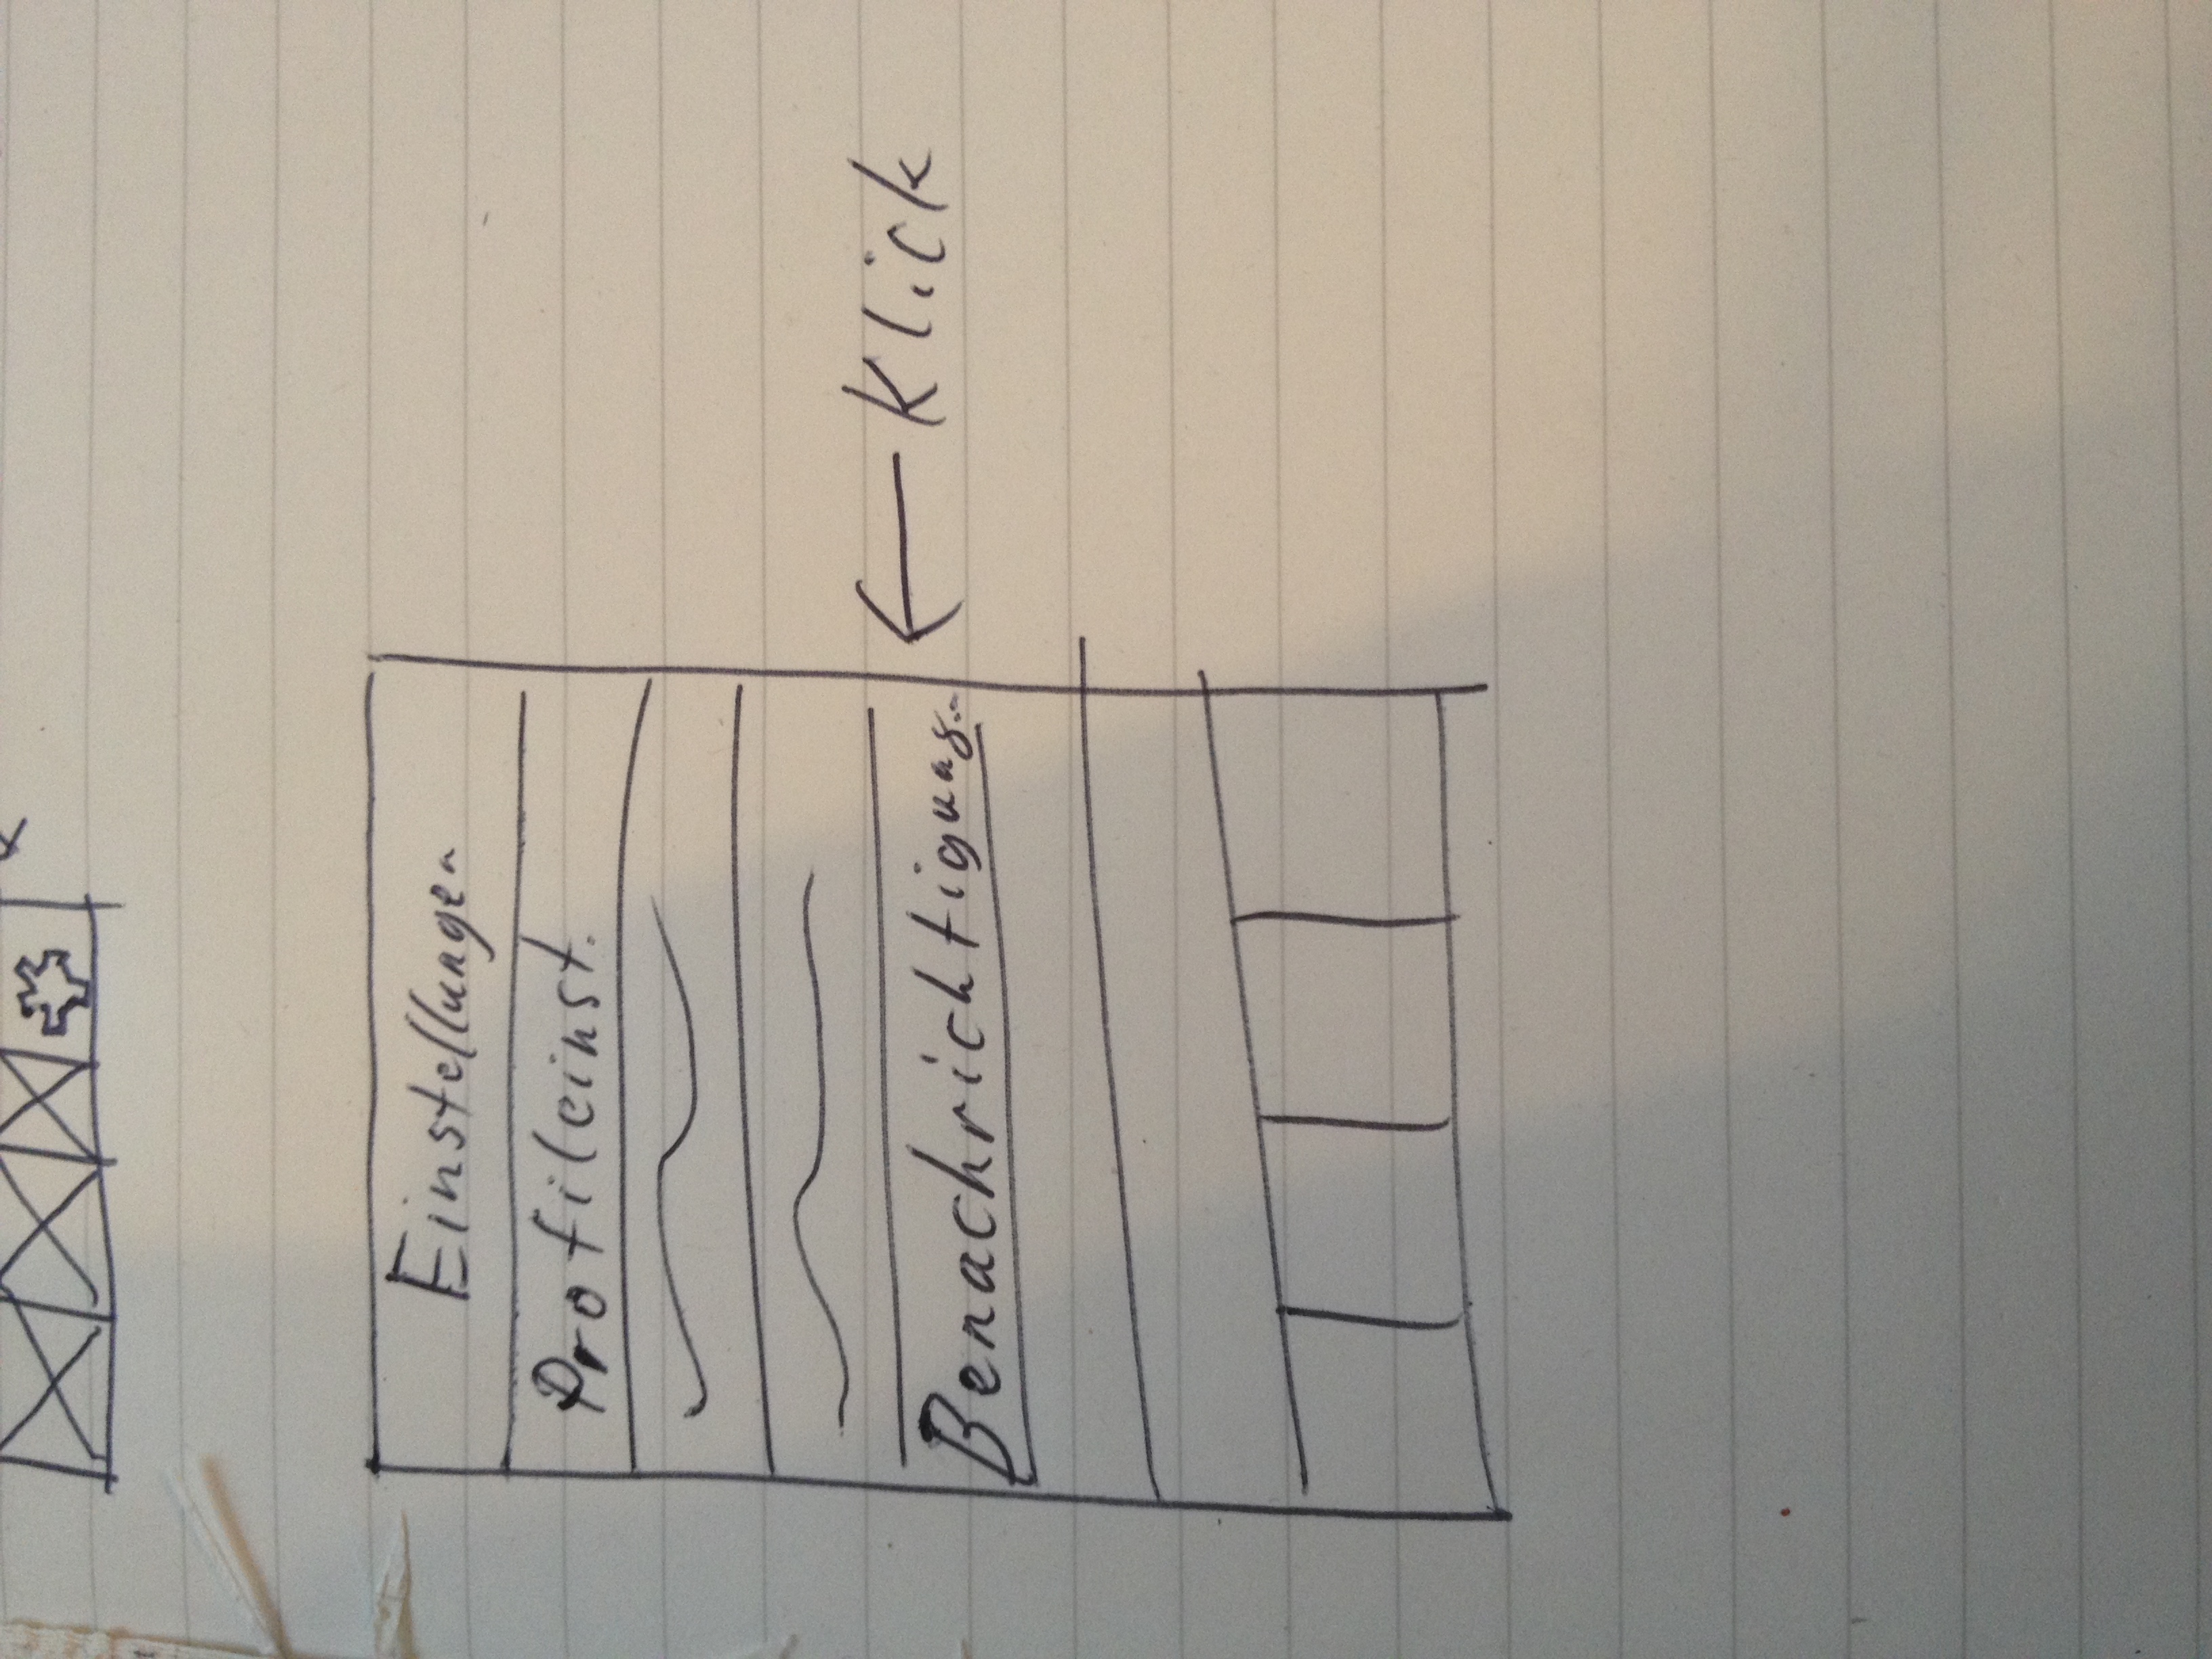 Einstellungen
Profileinst.
Benachrichtigung..
Klick